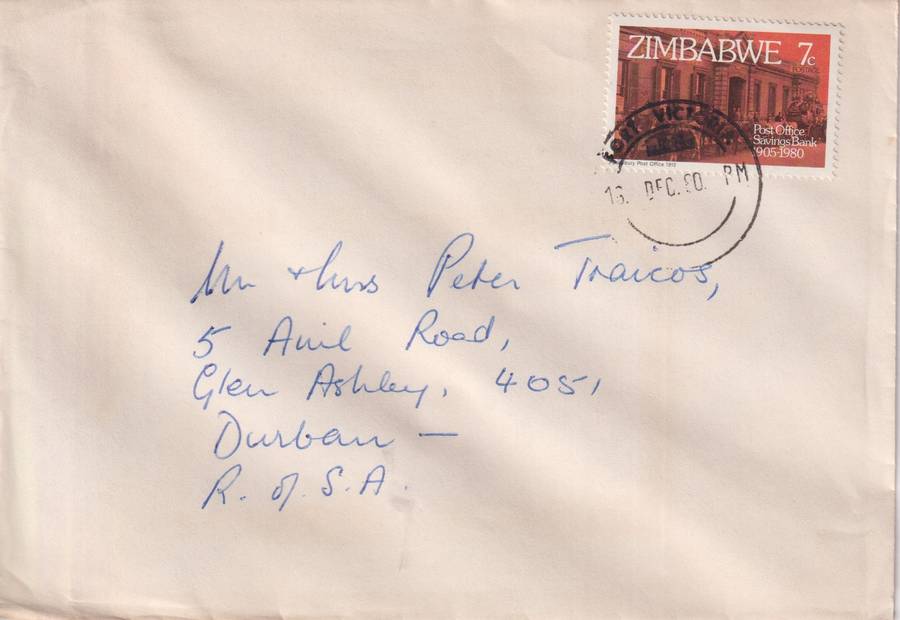 ZIMBABWE 7c
POSTAGE
Post Office
Savings Bank
1905-1980
Post Office 1912
FORT VICTORIA
16. DEC. 80. PM
Mr + Mrs Peter Traicos,
5 Anil Road,
Glen Ashley, 4051,
Durban —
R. of S.A.